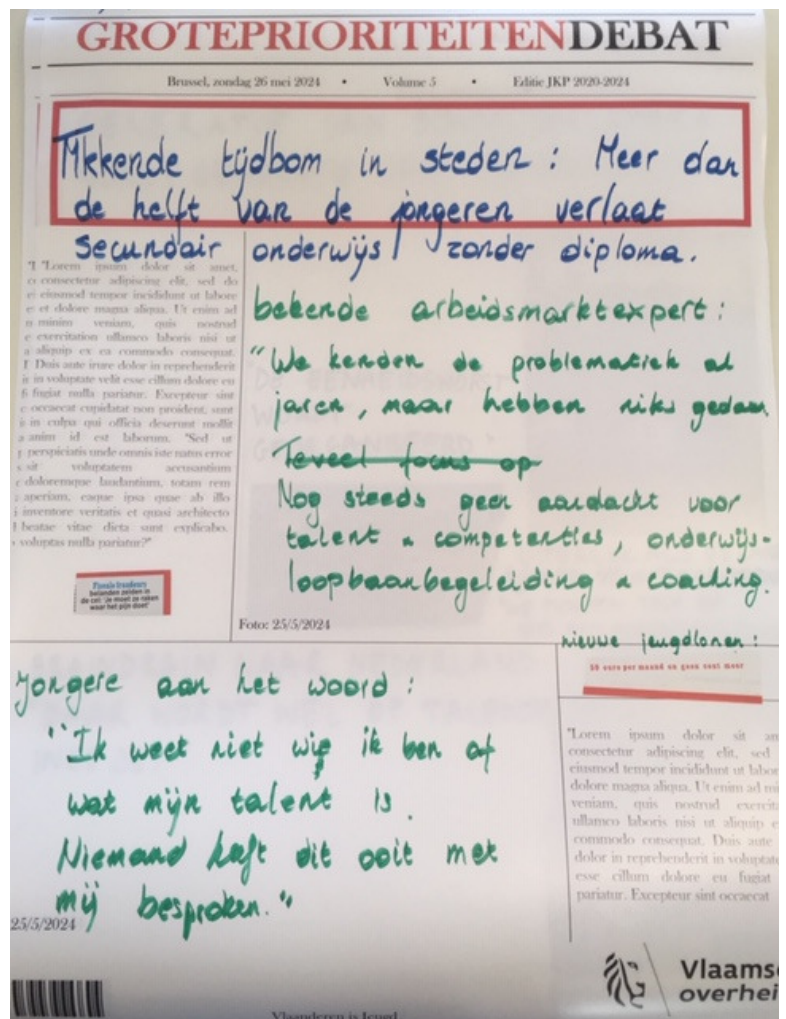 GROTEPRIORITEITENDEBAT
Brussel, zondag 26 mei 2024 • Volume 5 • Editie JKP 2020-2024
Tikkende tijdbom in steden : Meer dan
de helft van de jongeren verlaat
secundair onderwijs zonder diploma.
"Lorem ipsum dolor sit amet,
consectetur adipiscing elit, sed do
eiusmod tempor incididunt ut labore
et dolore magna aliqua. Ut enim ad
minim veniam, quis nostrud
exercitation ullamco laboris nisi ut
aliquip ex ea commodo consequat.
Duis aute irure dolor in reprehenderit
in voluptate velit esse cillum dolore eu
fugiat nulla pariatur. Excepteur sint
occaecat cupidatat non proident, sunt
in culpa qui officia deserunt mollit
anim id est laborum. "Sed ut
perspiciatis unde omnis iste natus error
sit voluptatem accusantium
doloremque laudantium, totam rem
aperiam, eaque ipsa quae ab illo
inventore veritatis et quasi architecto
beatae vitae dicta sunt explicabo.
voluptas nulla pariatur?"
Fiscale fraudeurs
belanden zelden in
de cel: 'Je moet ze raken
waar het pijn doet'
bekende arbeidsmarktexpert :
"We kenden de problematiek al
jaren, maar hebben niks gedaan
Teveel focus op
Nog steeds geen aandacht voor
talent & competenties, onderwijs-
loopbaanbegeleiding & coaching.
Foto: 25/5/2024
nieuwe jeugdlonen :
50 euro per maand en geen cent meer
Jongere aan het woord :
"Ik weet niet wie ik ben of
wat mijn talent is.
Niemand heeft dit ooit met
mij besproken."
25/5/2024
"Lorem ipsum dolor sit am
consectetur adipiscing elit, sed
eiusmod tempor incididunt ut labor
dolore magna aliqua. Ut enim ad mi
veniam, quis nostrud exercita
ullamco laboris nisi ut aliquip e
commodo consequat. Duis aute
dolor in reprehenderit in voluptate
esse cillum dolore eu fugiat
pariatur. Excepteur sint occaecat
Vlaamse
overhei
Vlaanderen is Jeugd